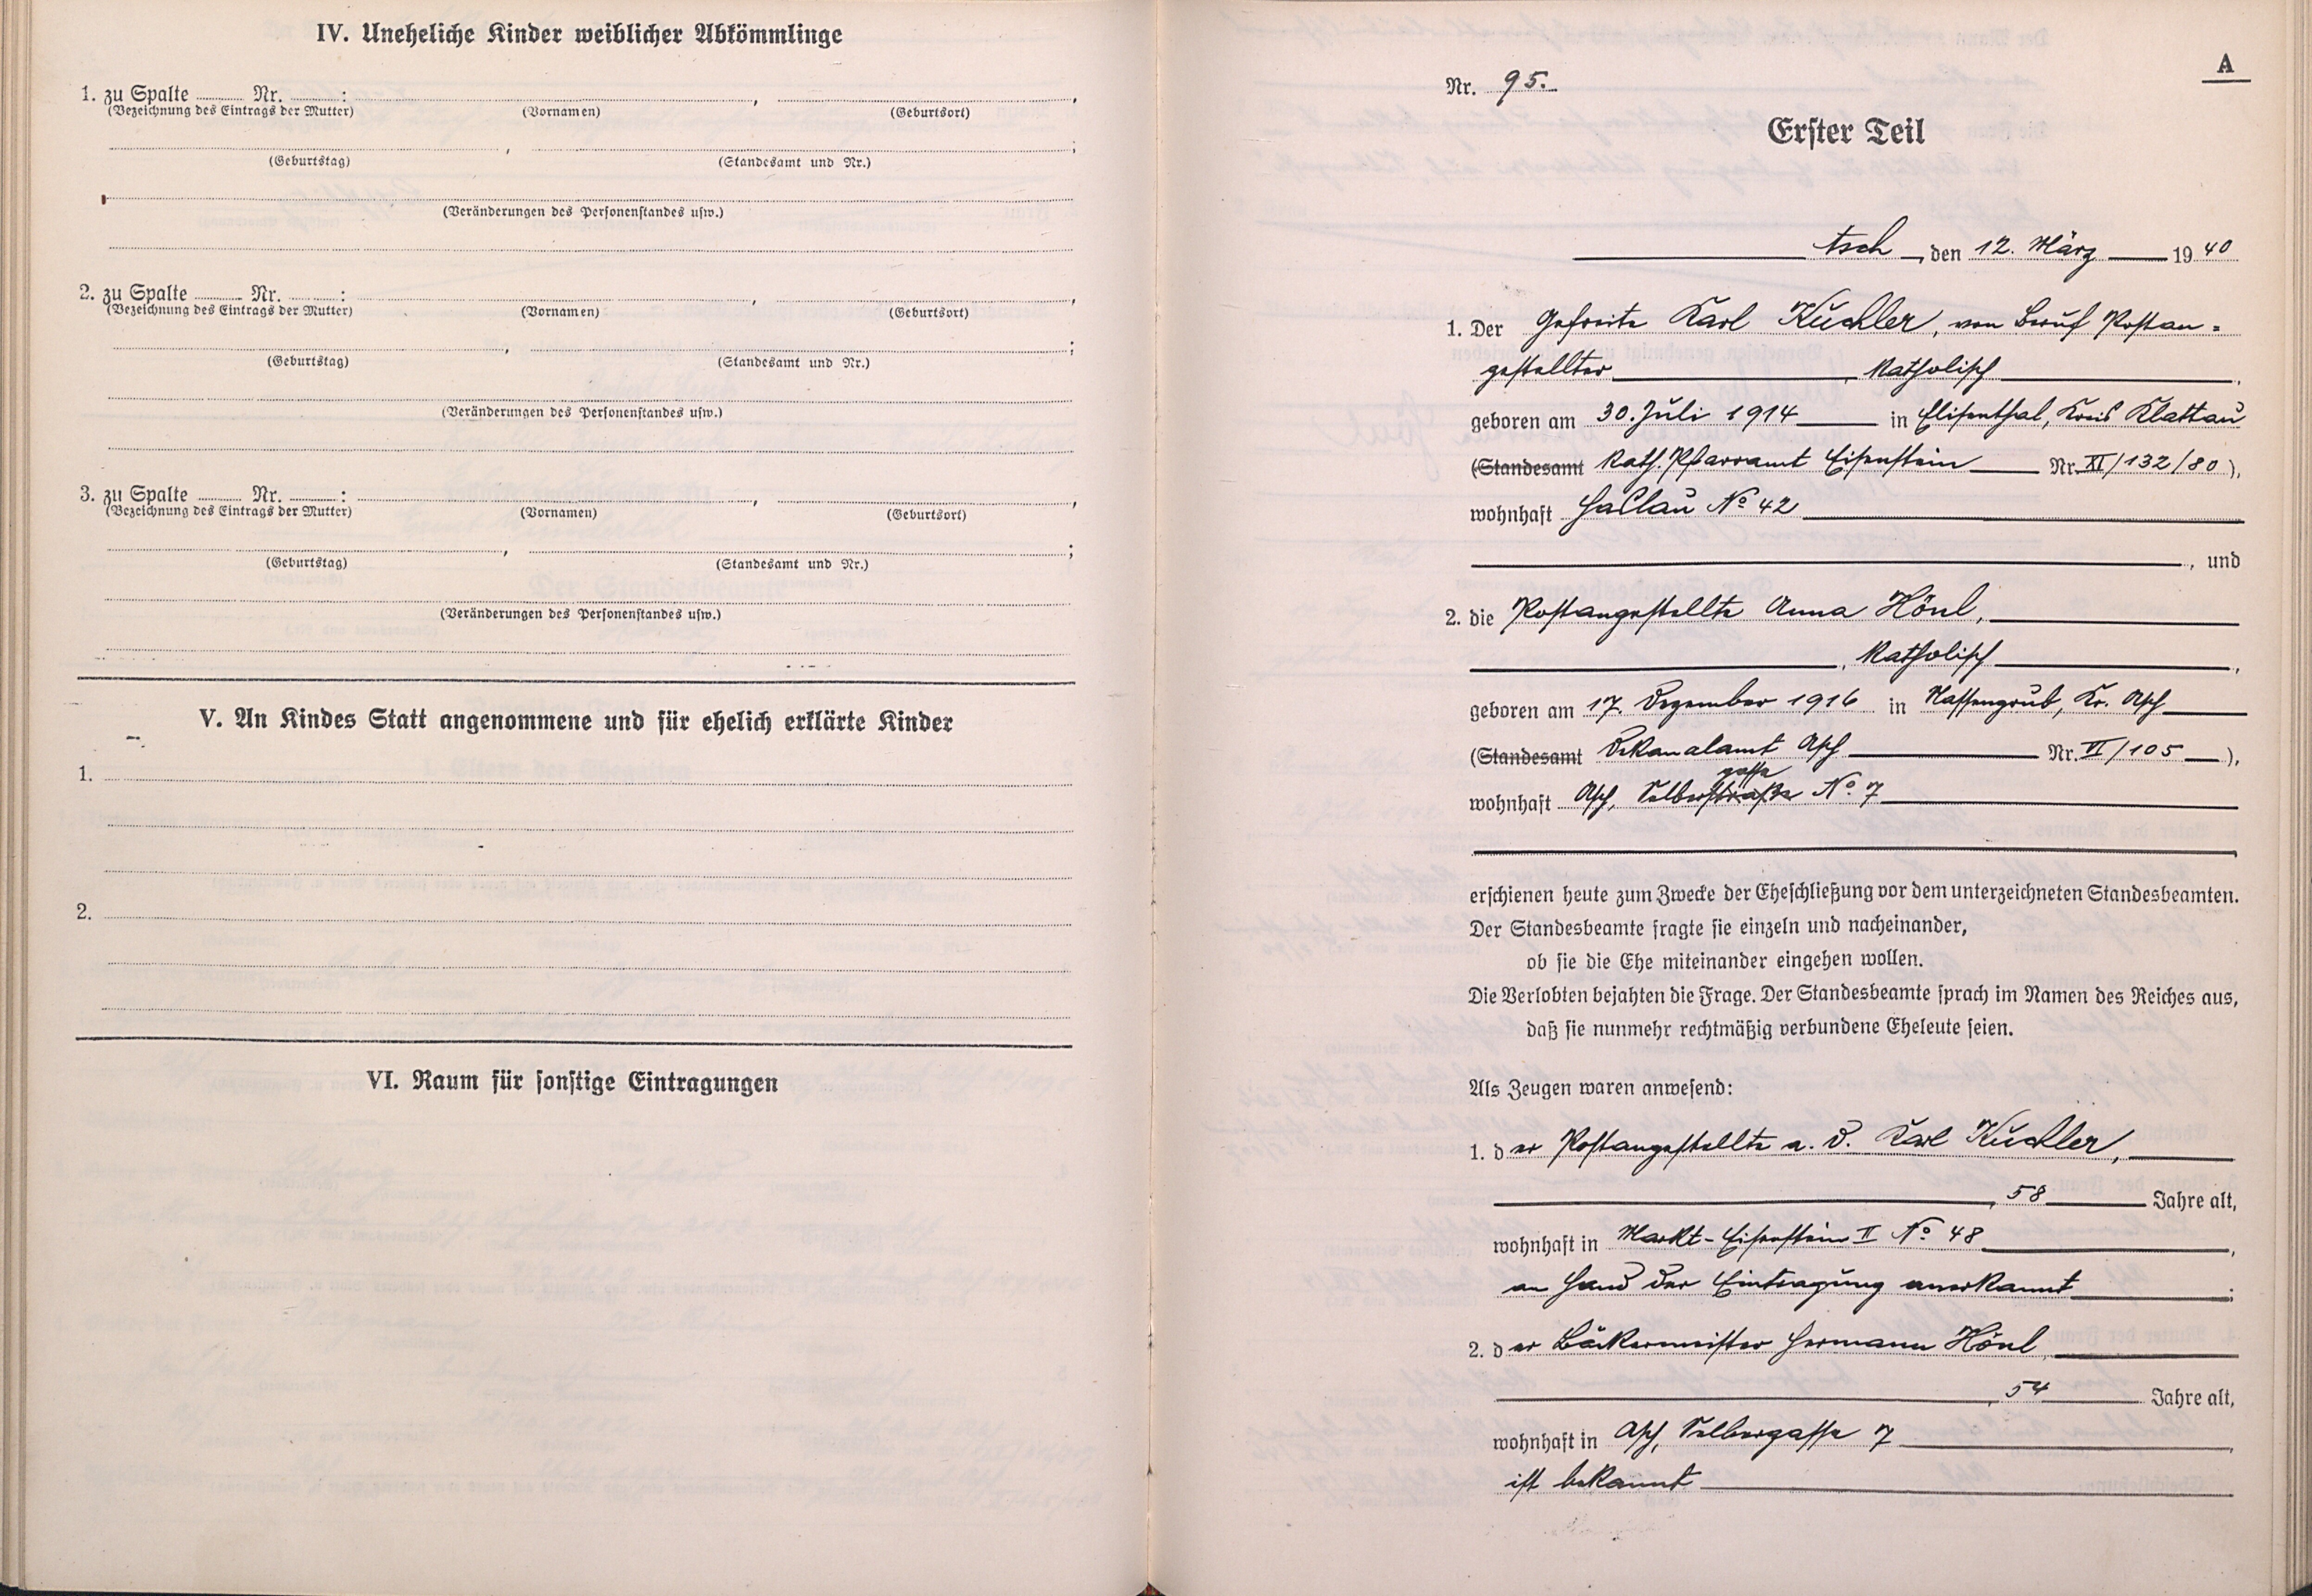 IV. Uneheliche Kinder weiblicher Abkömmlinge
1. zu Spalte Nr. : , ,
(Bezeichnung des Eintrags der Mutter) (Vornamen) (Geburtsort)
, ;
(Geburtstag) (Standesamt und Nr.)
(Veränderungen des Personenstandes usw.)
2. zu Spalte Nr. : , ,
(Bezeichnung des Eintrags der Mutter) (Vornamen) (Geburtsort)
, ;
(Geburtstag) (Standesamt und Nr.)
(Veränderungen des Personenstandes usw.)
3. zu Spalte Nr. : , ,
(Bezeichnung des Eintrags der Mutter) (Vornamen) (Geburtsort)
, ;
(Geburtstag) (Standesamt und Nr.)
(Veränderungen des Personenstandes usw.)
V. An Kindes Statt angenommene und für ehelich erklärte Kinder
1.
2.
VI. Raum für sonstige Eintragungen
A
Nr. 95.
Erster Teil
Asch, den 12. März 19 40
1. Der Gefreite Karl Kuchler, von Beruf Postan=
gestellter, katholisch,
geboren am 30. Juli 1914 in Elisenthal, Kreis Klattau
(Standesamt Kath. Pfarramt Eisenstein Nr. XI/132/80),
wohnhaft Haslau No 42
, und
2. die Postangestellte Anna Hönl,
, katholisch,
geboren am 17. Dezember 1916 in Nassengrub, Kr. Asch
(Standesamt Dekanalamt Asch Nr. VI/105),
gasse
wohnhaft Asch, Selberstraße No 7
erschienen heute zum Zwecke der Eheschließung vor dem unterzeichneten Standesbeamten.
Der Standesbeamte fragte sie einzeln und nacheinander,
ob sie die Ehe miteinander eingehen wollen.
Die Verlobten bejahten die Frage. Der Standesbeamte sprach im Namen des Reiches aus,
daß sie nunmehr rechtmäßig verbundene Eheleute seien.
Als Zeugen waren anwesend:
1. der Postangestellte a. D. Karl Kuchler,
, 58 Jahre alt,
wohnhaft in Markt-Eisenstein II No 48,
an Hand der Eintragung anerkannt;
2. der Bäckermeister Hermann Hönl,
, 54 Jahre alt,
wohnhaft in Asch, Selbergasse 7,
ist bekannt